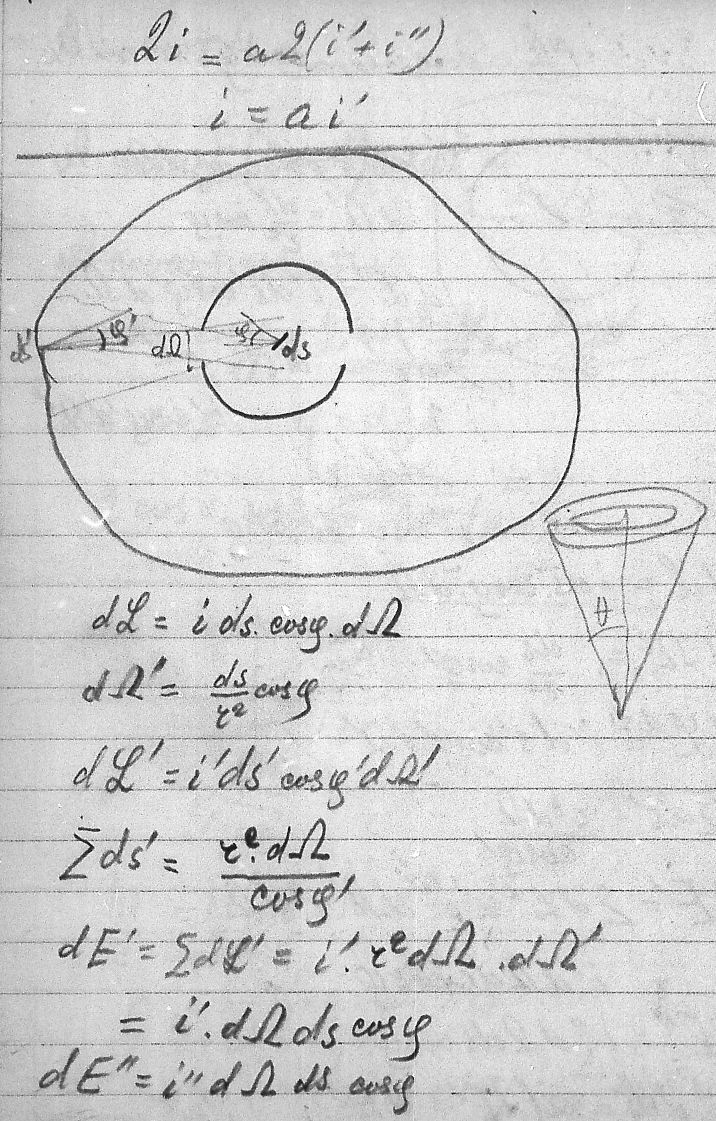 2i = a2(i'+i'')
i = a i'
ds' φ' dΩ φ ds
θ
dL = i ds. cosφ. dΩ
dΩ' = ds/r² cosφ
dL' = i'ds' cosφ'dΩ'
Σds' = r². dΩ/cosφ'
dE' = ΣdL' = i'. r²dΩ .dΩ'
= i'. dΩ ds cosφ
dE'' = i'' dΩ ds cosφ